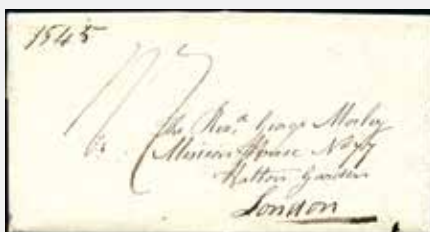 1545
The Revd. George Morley
Mission House No 77
Hatton Garden
London